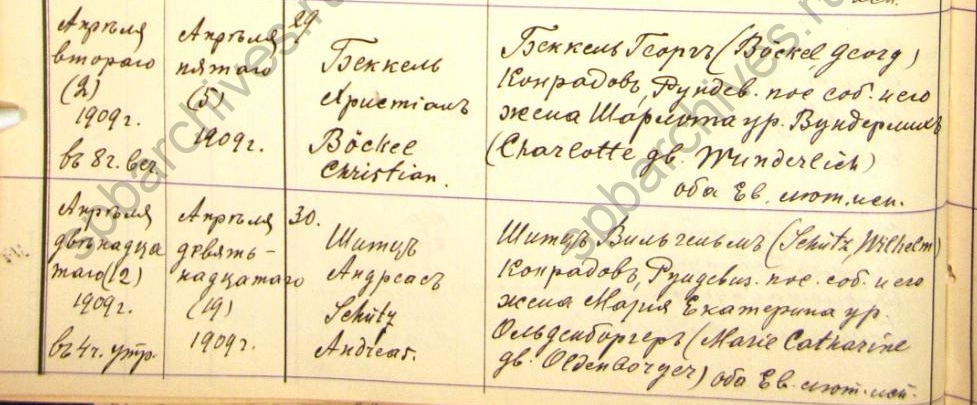 Апрѣля
втораго
(2)
1909г.
въ 8 г. веч.
Апрѣля
пятаго
(5)
1909г.
29
Беккель
Христіанъ
Böckel
Christian.
Беккель Георгъ (Böckel, Georg)
Конрадовъ, Рундев. пос. соб. и его
жена Шарлота ур. Вундерлихъ
(Charlotte дв. Wunderlich)
оба Ев. лют. исп.
Апрѣля
двѣнадца
таго (12)
1909г.
въ 4 ч. утр.
Апрѣля
девять-
надцатаго
(19)
1909г.
30.
Шитцъ
Андреасъ
Schütz
Andreas.
Шитцъ Вильгельмъ (Schütz, Wilhelm)
Конрадовъ, Рундевиз. пос. соб. и его
жена Мария Екатерина ур.
Ольденборгеръ (Marie Catharine
дв. Oldenborger) оба Ев. лют. исп.
spbarchives.ru
spbarchives.ru